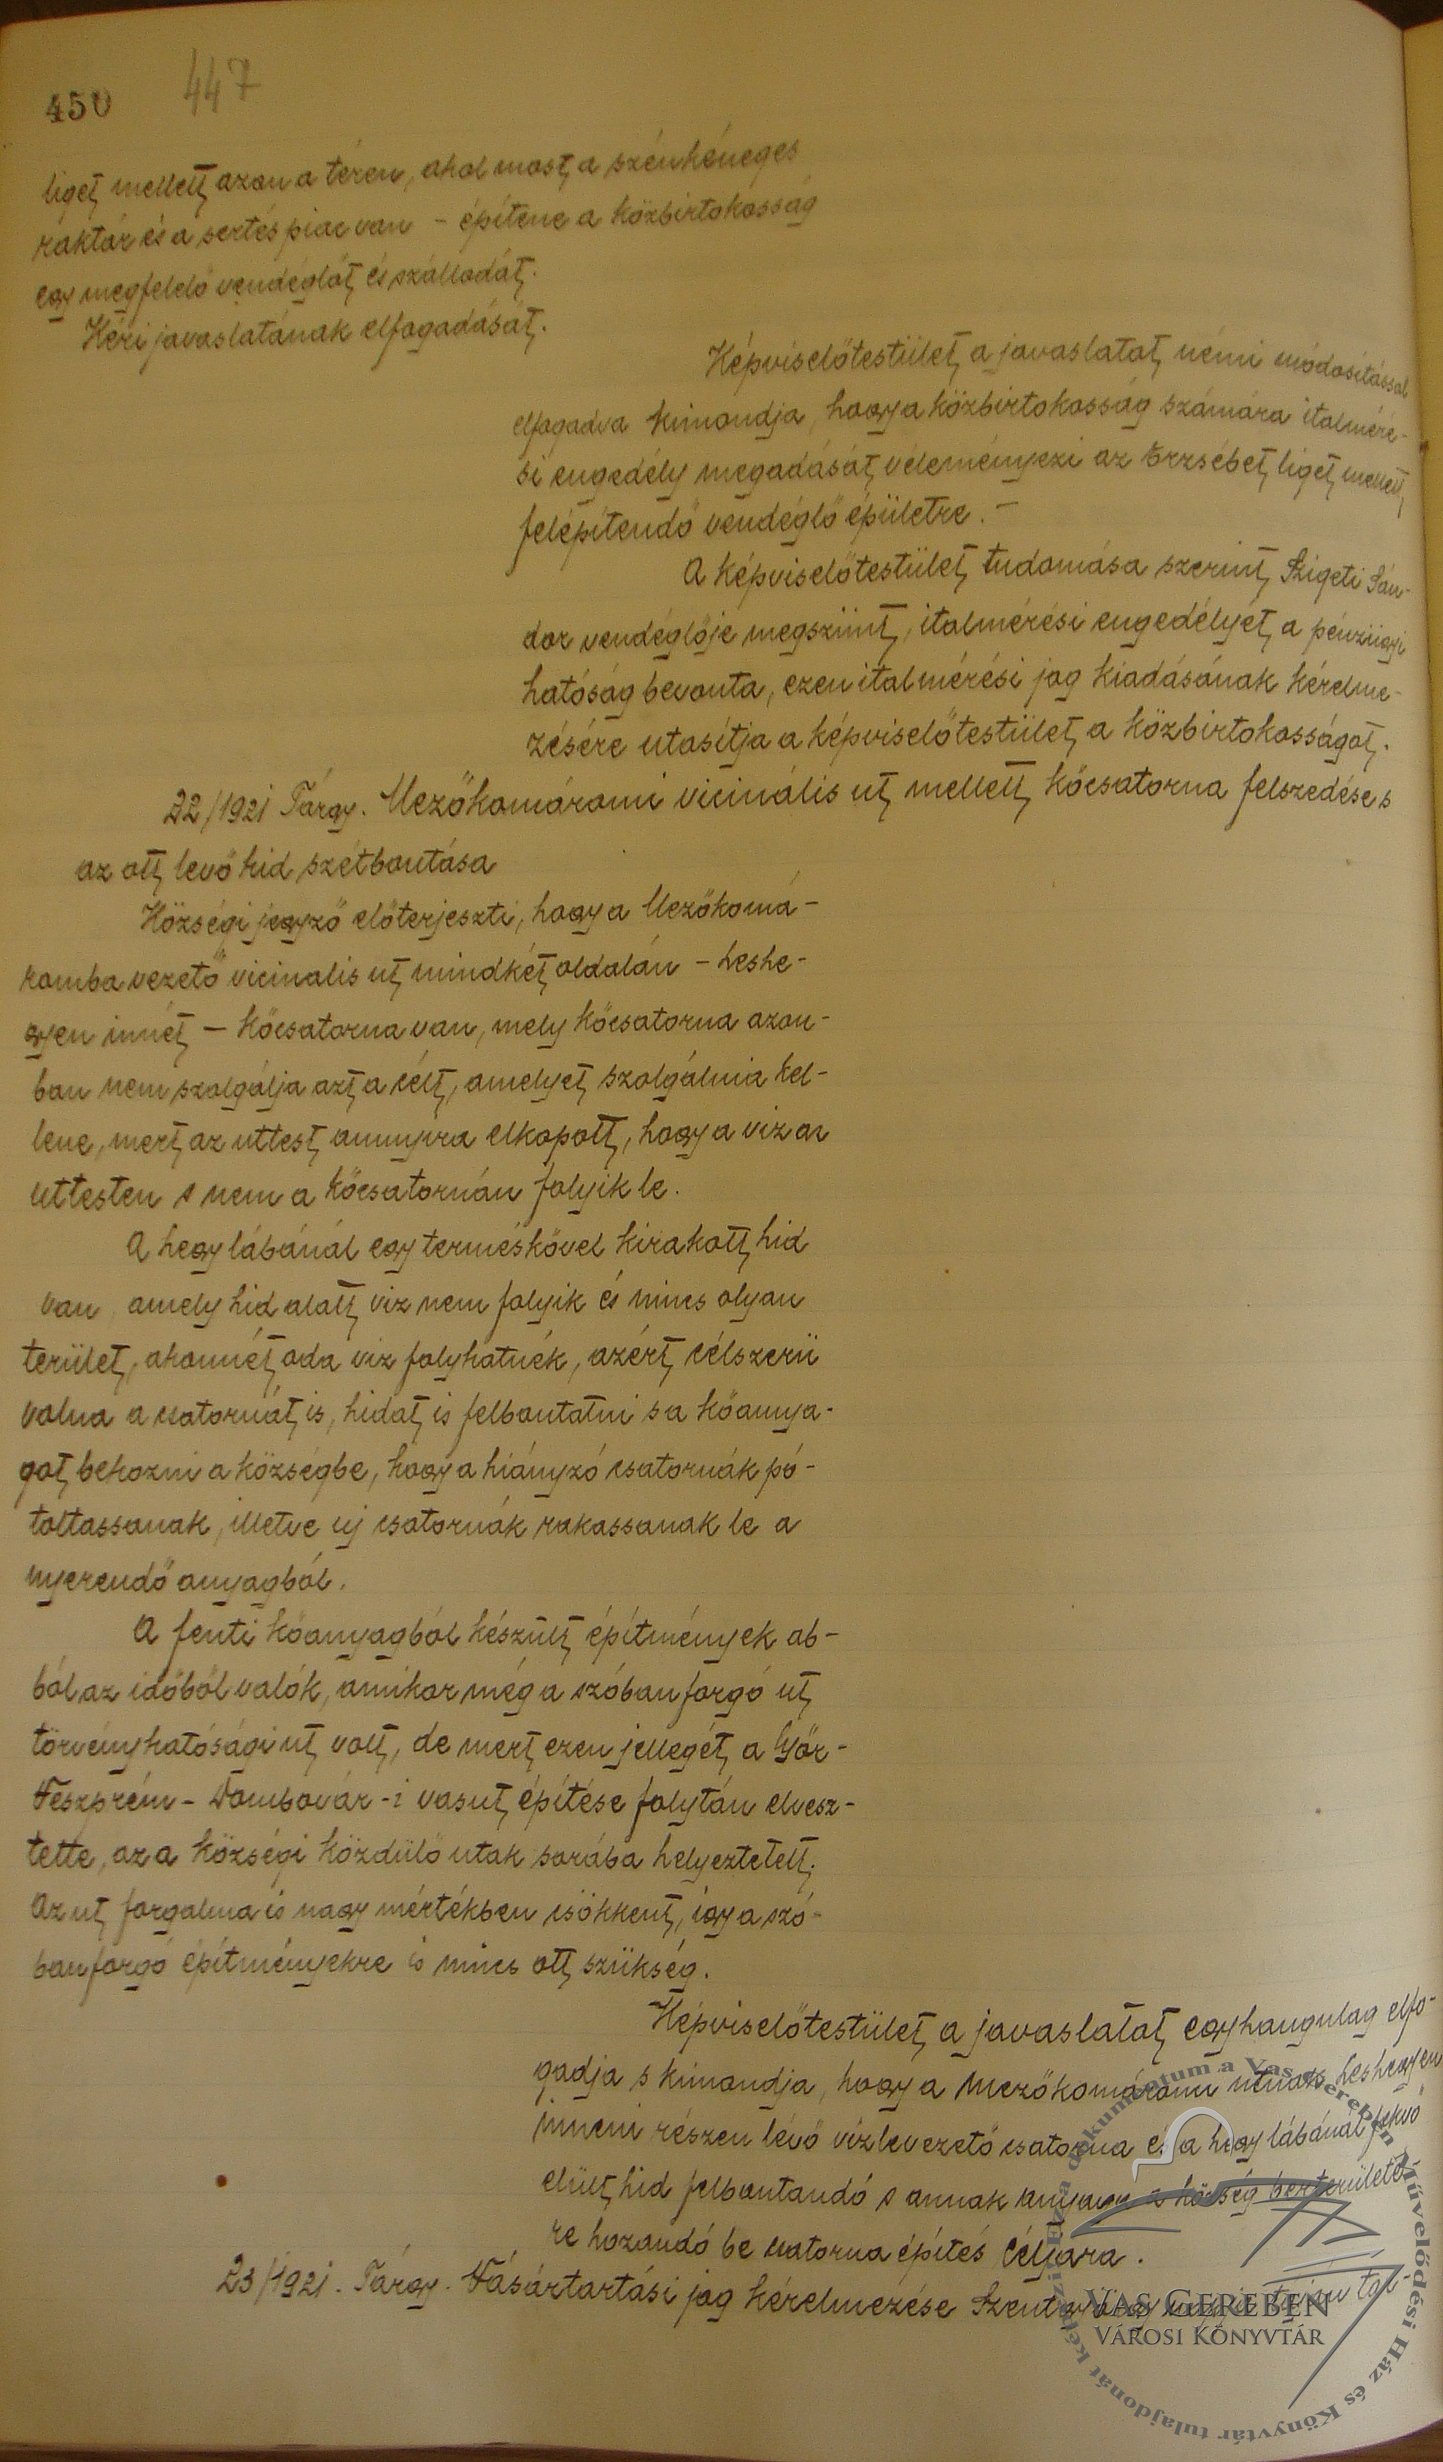 450 447
liget mellett azon a téren, ahol most a szénkéneges
raktár és a sertéspiac van - építene a közbirtokosság
egy megfelelő vendéglőt és szállodát.
Kéri javaslatának elfogadását.
Képviselőtestület a javaslatot némi módosítással
elfogadva kimondja, hogy a közbirtokosság számára italméré-
si engedély megadását véleményezi az Erzsébet liget mellett
felépítendő vendéglő épületre. -
A képviselőtestület tudomása szerint Szigeti Sán-
dor vendéglője megszünt, italmérési engedélyét a pénzügyi
hatóság bevonta, ezen italmérési jog kiadásának kérelme-
zésére utasítja a képviselőtestület a közbirtokosságot.
22/1921 Tárgy. Mezőkomáromi vicinális ut mellett kőcsatorna felszedése s
az ott levő hid szétbontása
Községi jegyző előterjeszti, hogy a Mezőkomá-
romba vezető vicinalis ut mindkét oldalán - heshe-
gyen innét - kőcsatorna van, mely kőcsatorna azon-
ban nem szolgálja azt a célt, amelyet szolgálnia kel-
lene, mert az uttest annyira elkopott, hogy a viz az
uttesten s nem a kőcsatornán folyik le.
A hegy lábánál egy terméskővel kirakott hid
van, amely hid alatt viz nem folyik és nincs olyan
terület, ahonnét oda viz folyhatnék, azért célszerü
volna a csatornát is, hidat is felbontatni s a kőanya-
got behozni a községbe, hogy a hiányzó csatornák pó-
toltassanak, illetve uj csatornák rakassanak le a
nyerendő anyagból.
A fenti kőanyagból készült építmények ab-
ból az időből valók, amikor még a szóban forgó ut
törvényhatósági ut volt, de mert ezen jellegét a Győr-
Veszprém - Dombovár-i vasut építése folytán elvesz-
tette, az a községi közdülő utak sorába helyeztetett.
Az ut forgalma is nagy mértékben csökkent, így a szó-
banforgó építményekre is nincs ott szükség.
Képviselőtestület a javaslatot egyhangulag elfo-
gadja s kimondja, hogy a mezőkomáromi utnak heshegyen
inneni részen lévő vizlevezető csatorna és a hegy lábánál fekvő
hid felbontandó s annak anyaga a község belterületé-
re hozandó be csatorna építés céljára.
23/1921. Tárgy. Vásártartási jog kérelmezése
VAS GEREBEN
VÁROSI KÖNYVTÁR
Ez a dokumentum a Vas Gereben Művelődési Ház és Könyvtár tulajdonát képezi